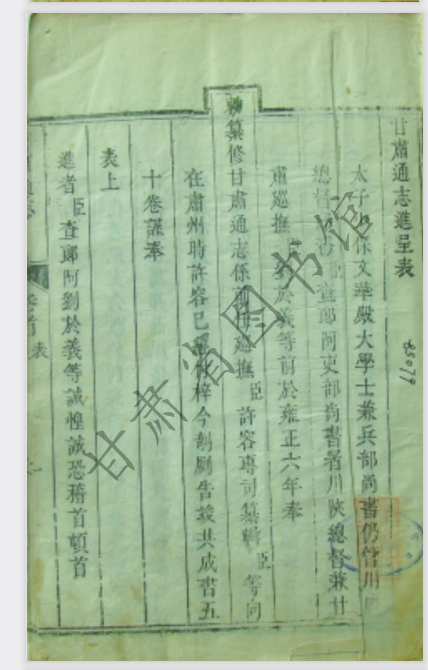 甘肅通志進呈表
太子少保文華殿大學士兼兵部尚書仍管川
總督臣查郎阿吏部尚書署川陝總督兼甘
肅巡撫臣劉於義等前於雍正六年奉
勅纂修甘肅通志係前任巡撫臣許容專司纂輯臣等同
在肅州時許容已梓今剞劂告竣共成書五
十卷謹奉
表上
進者臣查郎阿劉於義等誠惶誠恐稽首頓首
通志
卷首
表
甘肃省图书馆
85079